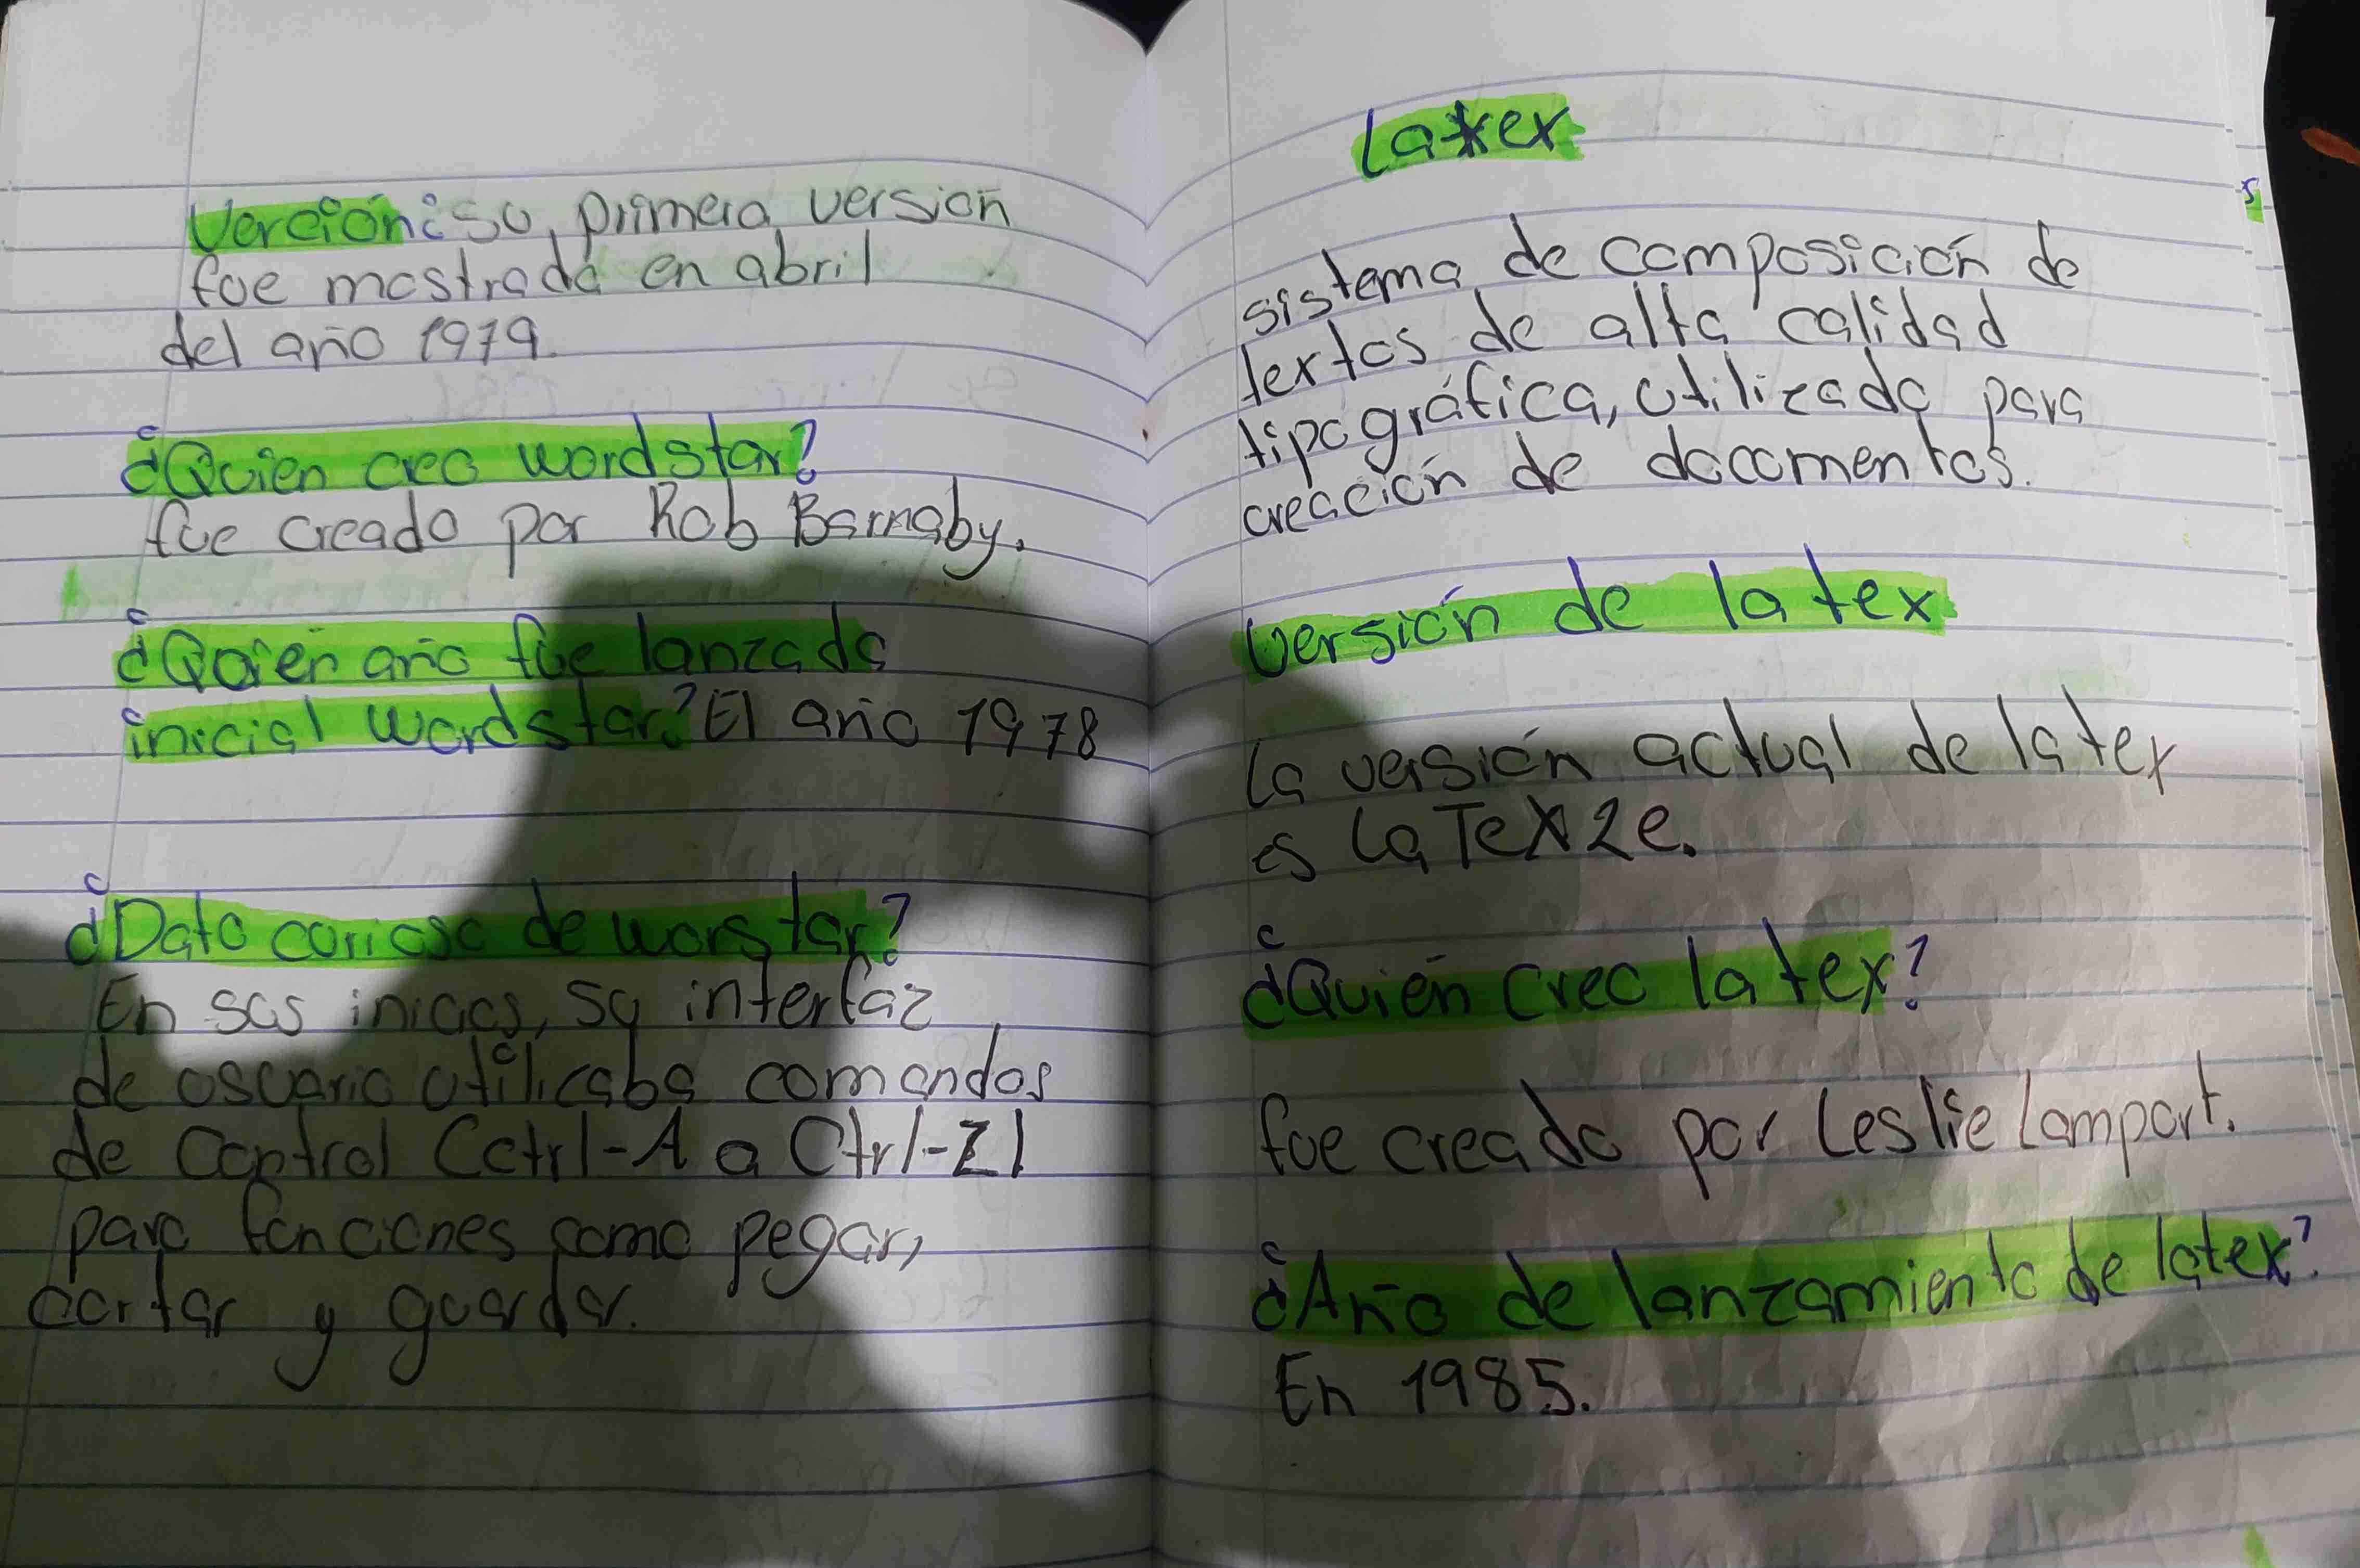 Verción: su primera versión
fue mostrada en abril
del año 1979.
¿Quien creo wordstar?
fue creado por Rob Barnaby.
¿Quien año fue lanzado
inicial wordstar? El año 1978
¿Dato corioso de worstar?
En sus inicios, su interfaz
de usuario utilizaba comandos
de control (ctrl-A a Ctrl-Z)
para funciones como pegar,
cortar y guardar.
latex
sistema de composición de
textos de alta calidad
tipográfica, utilizado para
creación de documentos.
versión de latex
La versión actual de latex
es LaTeX2e.
¿Quién creo latex?
fue creado por Leslie Lamport.
¿Año de lanzamiento de latex?
En 1985.